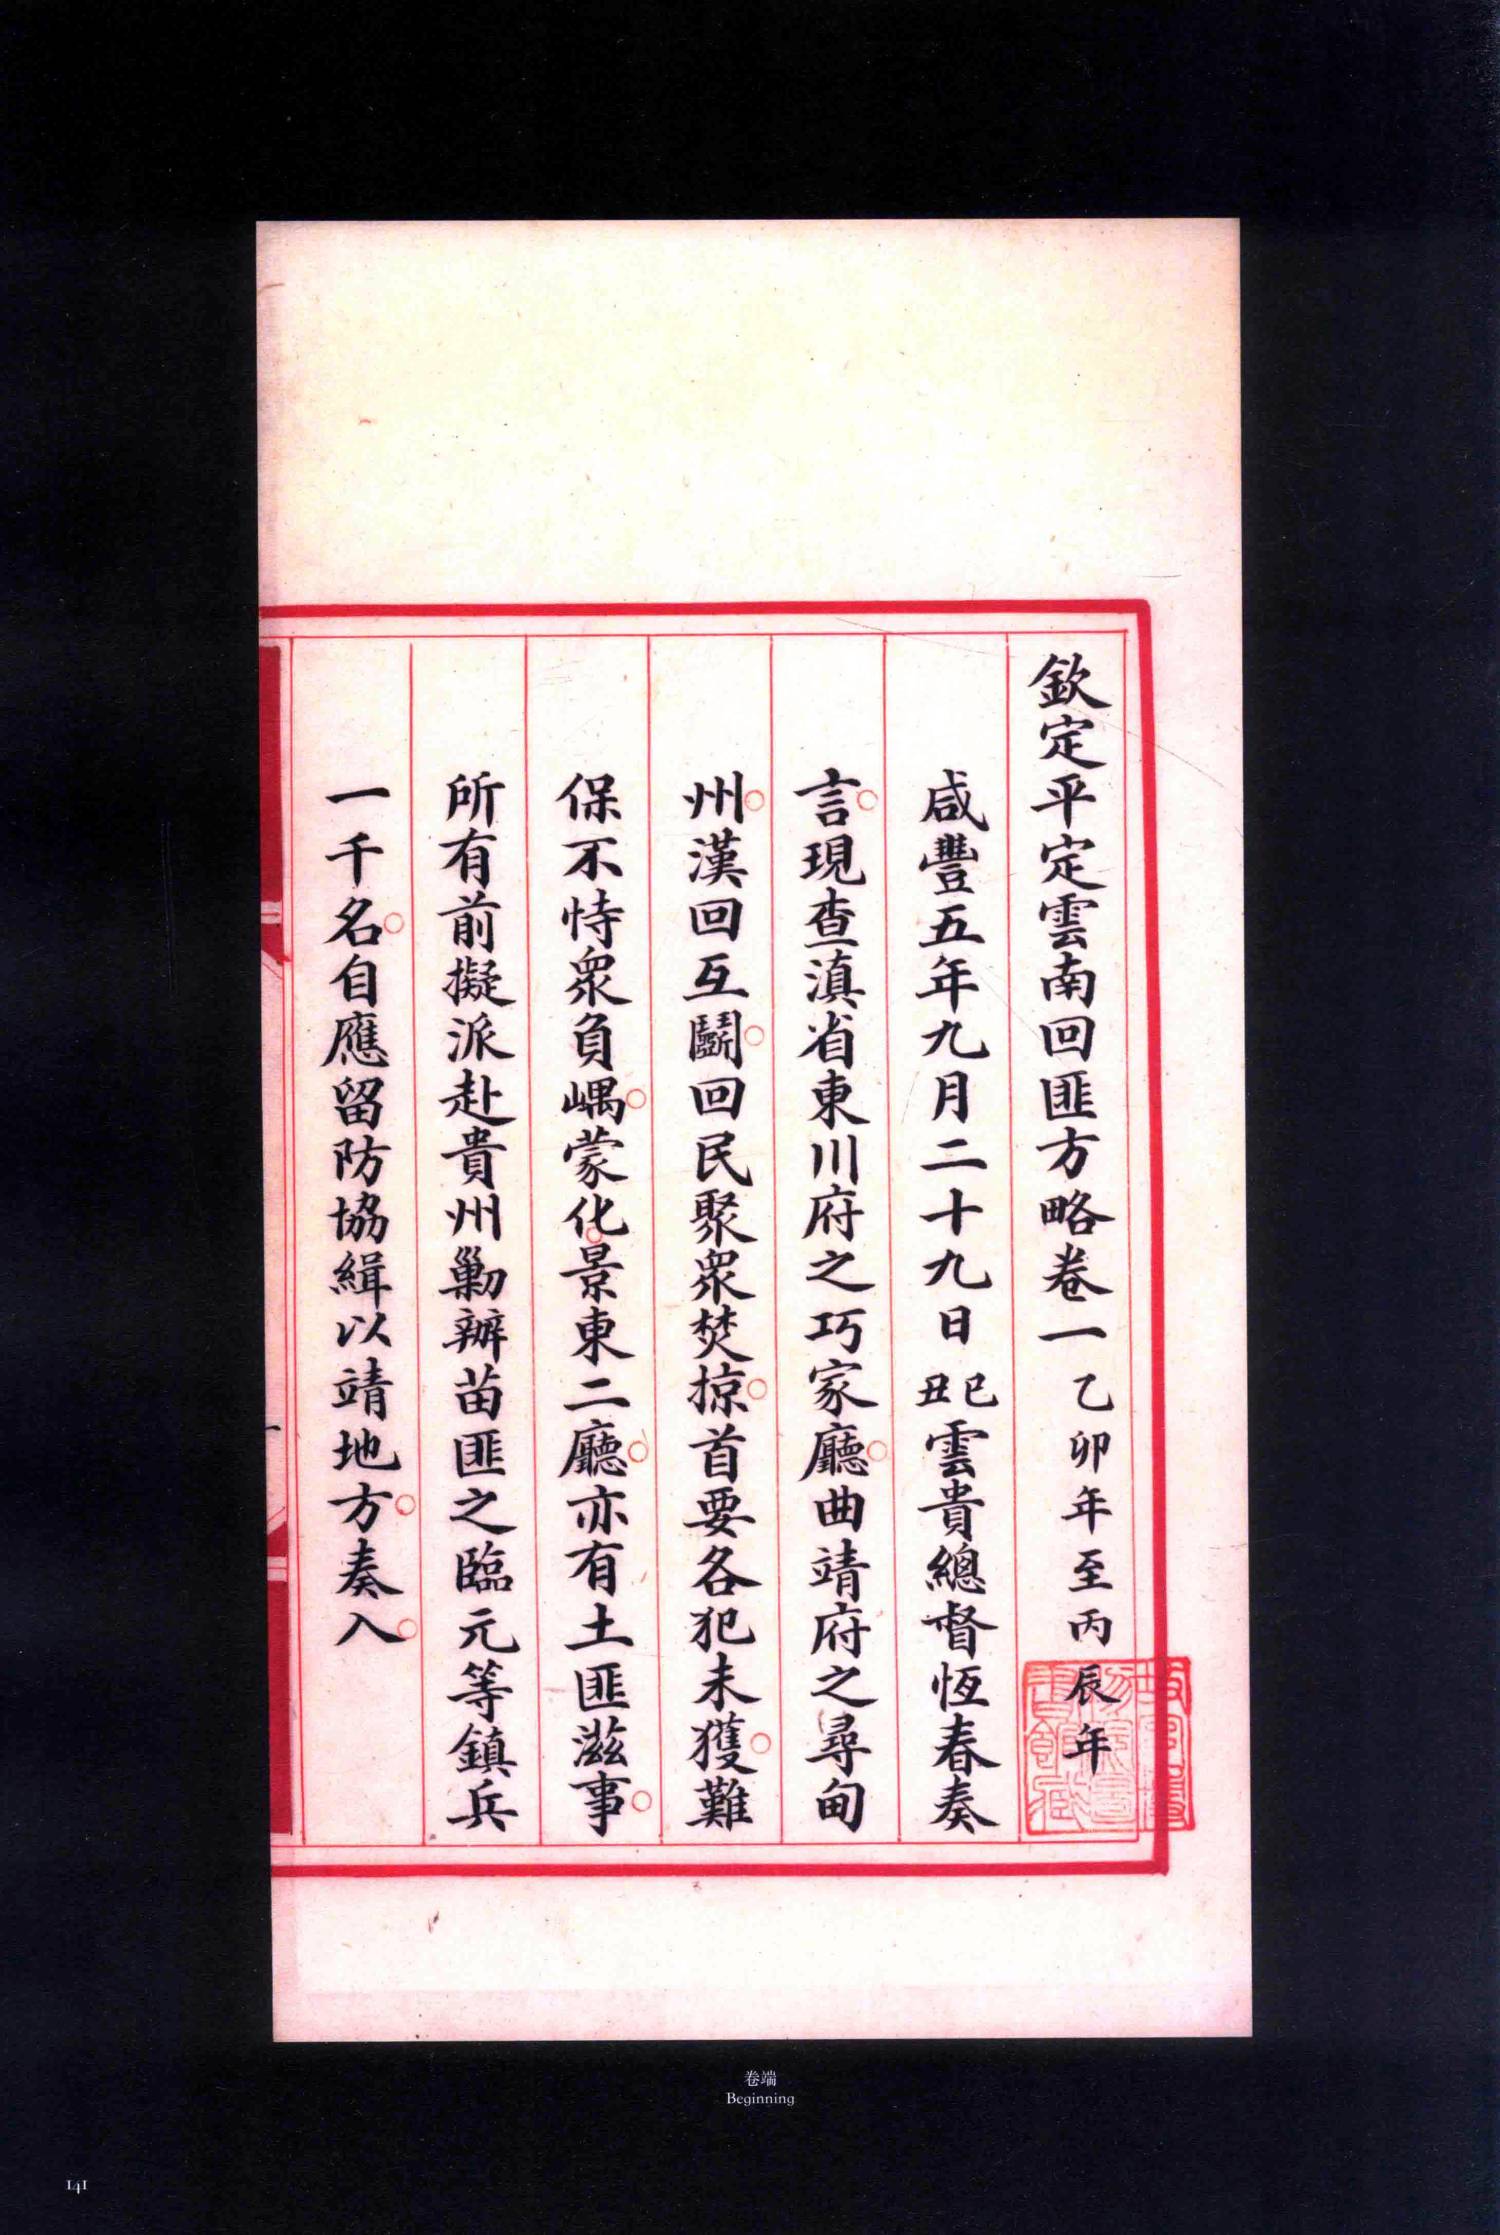 欽定平定雲南回匪方略卷一乙卯年至丙辰年
咸豐五年九月二十九日己丑雲貴總督恆春奏
言現查滇省東川府之巧家廳曲靖府之尋甸
州漢回互鬭回民聚眾焚掠首要各犯未獲難
保不恃眾負嵎蒙化景東二廳亦有土匪滋事
所有前擬派赴貴州勦辦苗匪之臨元等鎮兵
一千名自應留防協緝以靖地方奏入
卷端
Beginning
141